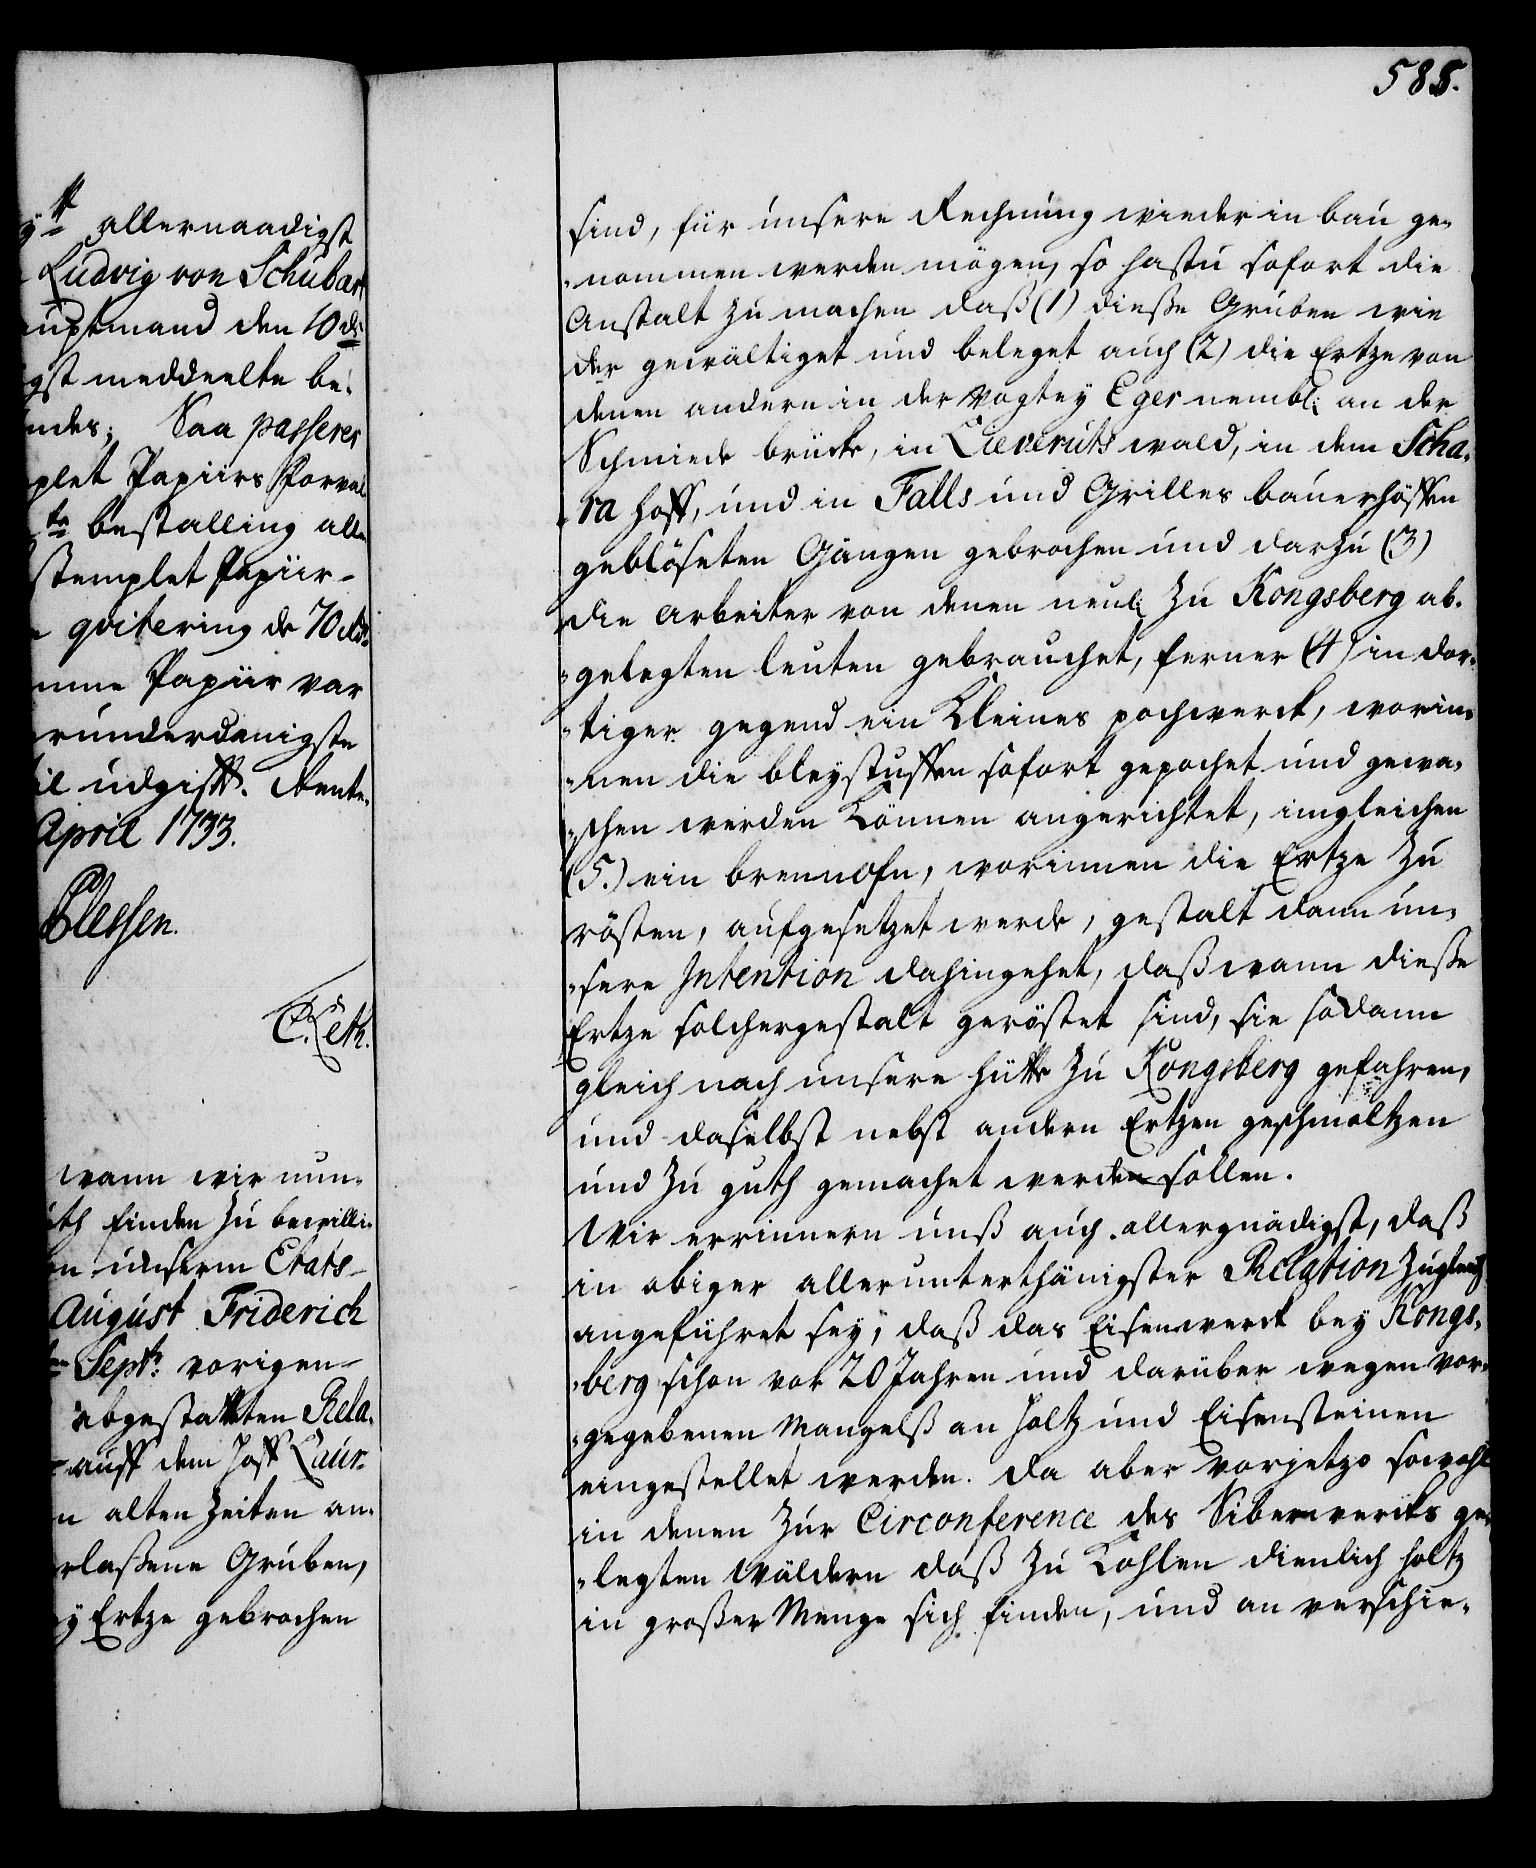 allernaadigst
Ludvig von Schubart
auptmand den 10 de
gst meddeelte be¬
ndes; Saa passerer
plet Papiirs Forval
te bestalling alle
stemplet Papiir
qvitering de 70 rdr.
mme Papiir var
runderdanigste
il udgift. Rente¬
April 1733.
Plessen.
wann wir nun¬
uth finden zu bewilli¬
en unserm Etats
August Friderich
Septbr: vorigen
abgestatteten Rela¬
auff dem Hoff Laur¬
n alten Zeiten an¬
rlaßene Gruben,
y Ertze gebrochen
585.
sind, für unsere Rechnung wieder in bau ge¬
nommen werden mögen, so hastu sofort die
Anstalt zu machen daß (1) dieße Gruben wie
der gewältiget und beleget auch (2) die Ertze von
denen andern in der Vogtey Eger nembl: an der
Schmiede brücke, in Cæveruts wald, in dem Scha¬
ra Hoff, und in Falls und Grilles bauerhöffen
geblöseten Gängen gebrochen und darzu (3)
die Arbeiter von denen neul: zu Kongsberg ab¬
gelegten leuten gebrauchet, ferner (4) in dor¬
tiger gegend ein Kleines pochwerck, worin¬
nen die bleystuffen sofort gepochet und gewa¬
schen werden Können angerichtet, imgleichen
(5.) ein brennofn, worinnen die Ertze zu
rösten, aufgesetzet werde, gestalt dann un¬
sere Intention dahingehet, daß wann dieße
Ertze solchergestalt geröstet sind, sie sodann
gleich nach unsere Hütte zu Kongsberg gefahren,
und daselbst nebst andern Ertzen geschmoltzen
und zu guth gemachet werden sollen.
Wir errinnern unß auch allergnädigst, daß
in obiger allerunterthänigster Relation zugleich
angeführet sey, daß das Eisenwerck bey Kongs¬
berg schon vor 20 Jahren und darüber wegen vor¬
gegebenen Mangelß an Holtz und Eisensteinen
eingestellet werden. Da aber vorjetzo sowohl
in denen zur Circonference des Silberwercks ge¬
legten Wäldern daß zu Kohlen dienlich Holtz
in großer Menge sich finden, und an verschie¬